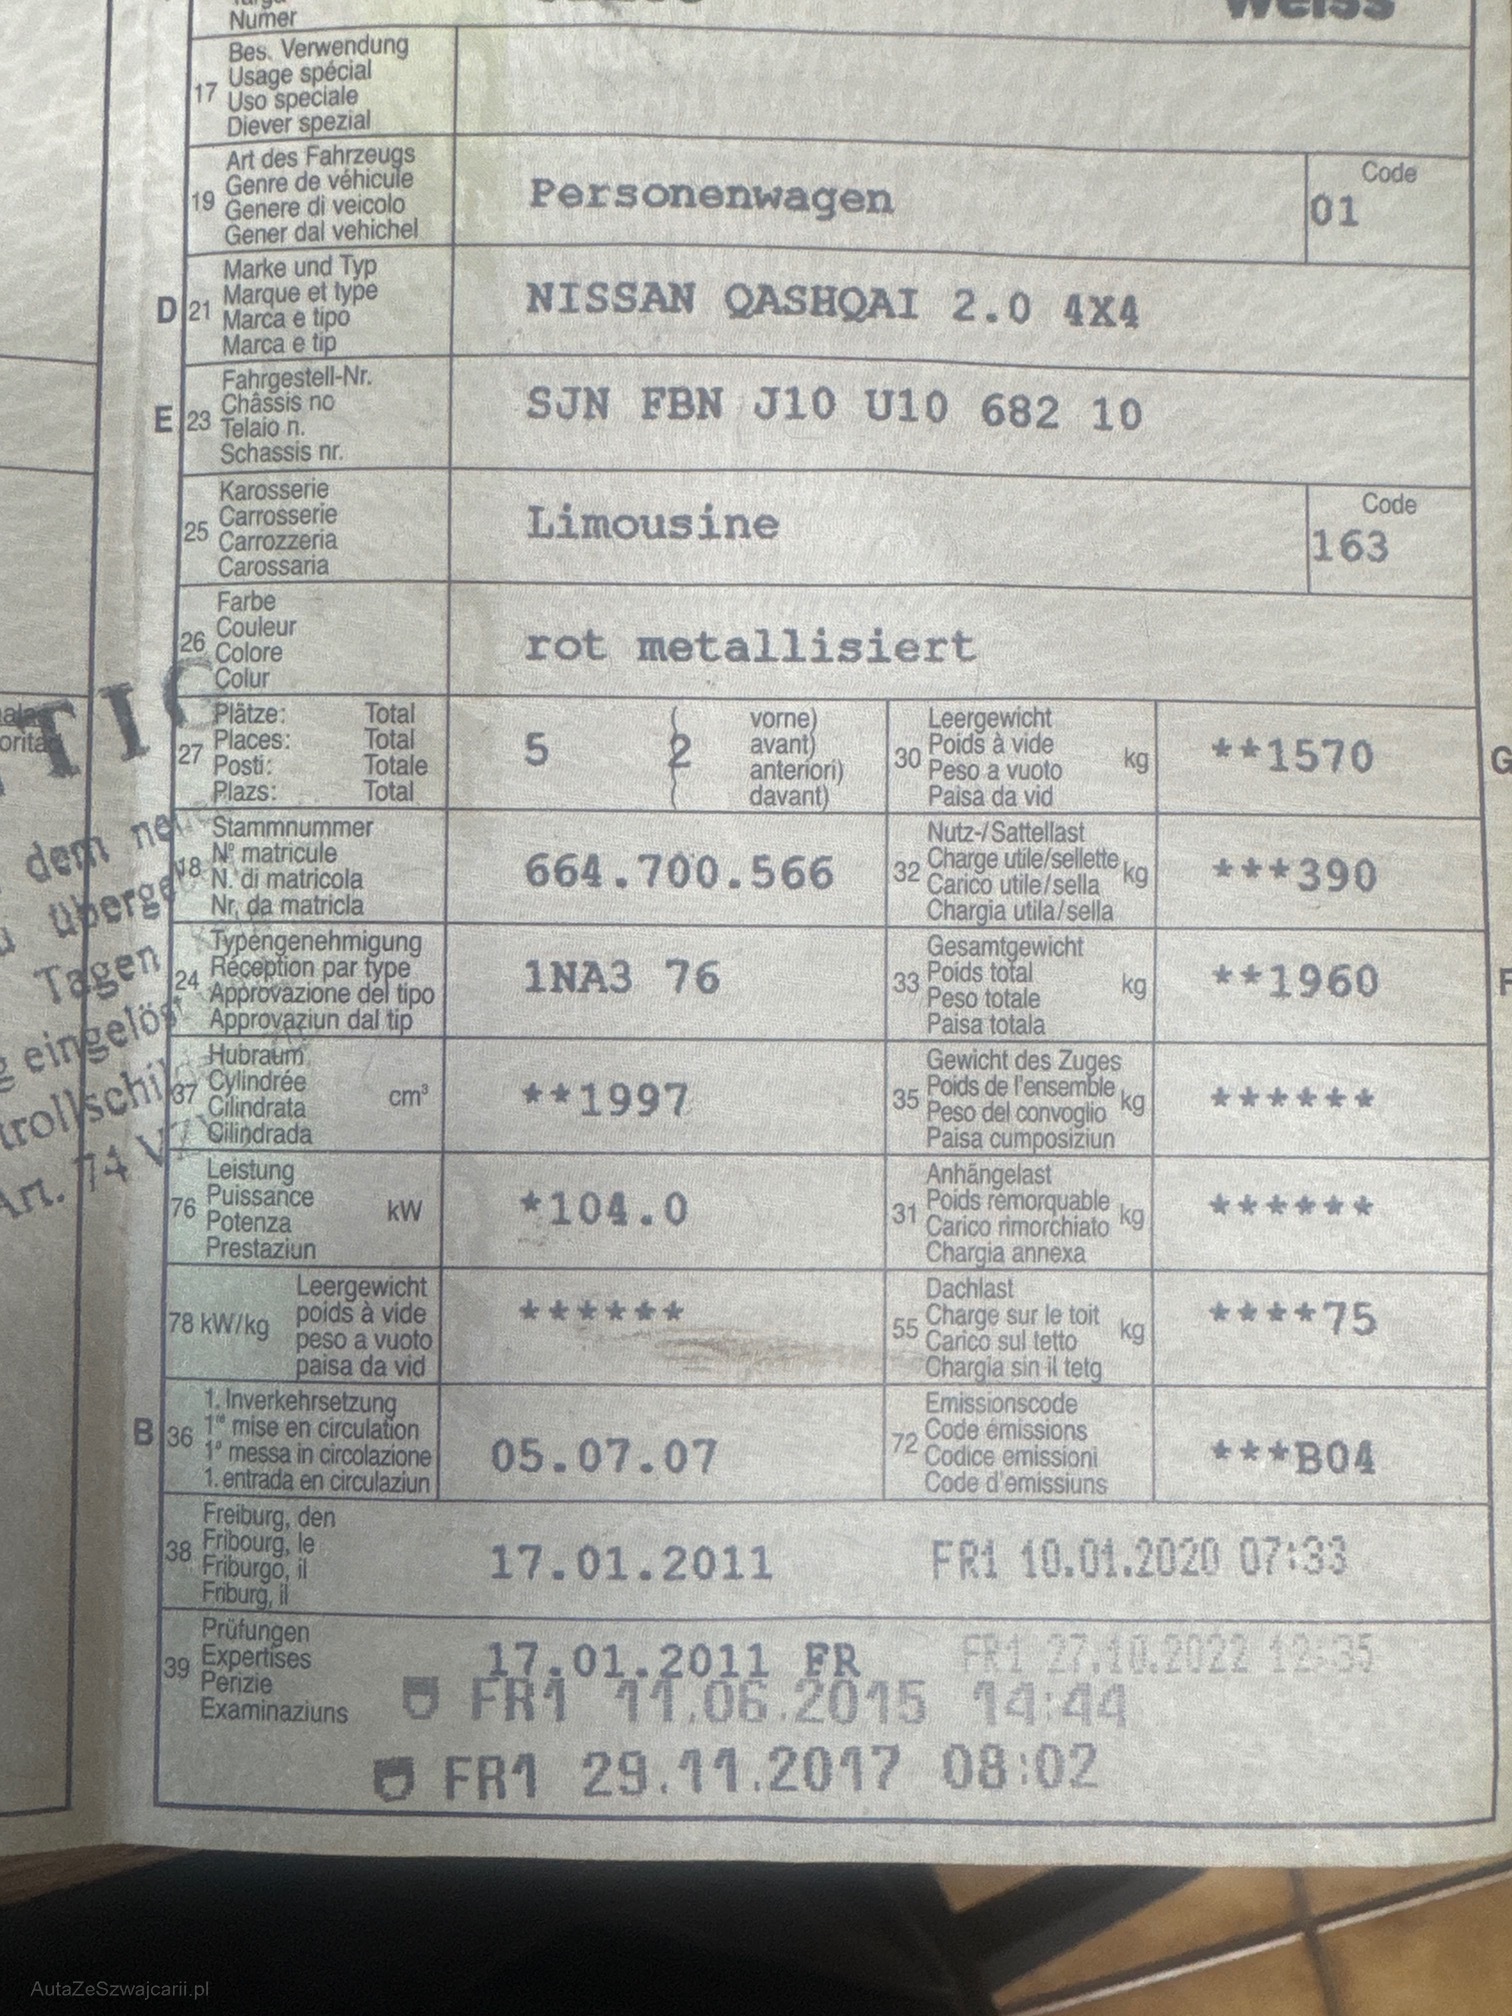 Numer
weiss
17
Bes. Verwendung
Usage spécial
Uso speciale
Diever spezial
19
Art des Fahrzeugs
Genre de véhicule
Genere di veicolo
Gener dal vehichel
Personenwagen
Code
01
D 21
Marke und Typ
Marque et type
Marca e tipo
Marca e tip
NISSAN QASHQAI 2.0 4X4
E 23
Fahrgestell-Nr.
Châssis no
Telaio n.
Schassis nr.
SJN FBN J10 U10 682 10
25
Karosserie
Carrosserie
Carrozzeria
Carossaria
Limousine
Code
163
26
Farbe
Couleur
Colore
Colur
rot metallisiert
27
Plätze: Total
Places: Total
Posti: Totale
Plazs: Total
5 ( 2
vorne)
avant)
anteriori)
davant)
30
Leergewicht
Poids à vide
Peso a vuoto
Paisa da vid
kg
**1570
G
18
Stammnummer
N° matricule
N. di matricola
Nr. da matricla
664.700.566
32
Nutz-/Sattellast
Charge utile/sellette
Carico utile/sella
Chargia utila/sella
kg
***390
24
Typengenehmigung
Réception par type
Approvazione del tipo
Approvaziun dal tip
1NA3 76
33
Gesamtgewicht
Poids total
Peso totale
Paisa totala
kg
**1960
F
37
Hubraum
Cylindrée
Cilindrata
Cilindrada
cm³
**1997
35
Gewicht des Zuges
Poids de l'ensemble
Peso del convoglio
Paisa cumposiziun
kg
******
76
Leistung
Puissance
Potenza
Prestaziun
kW
*104.0
31
Anhängelast
Poids remorquable
Carico rimorchiato
Chargia annexa
kg
******
78 kW/kg
Leergewicht
poids à vide
peso a vuoto
paisa da vid
******
55
Dachlast
Charge sur le toit
Carico sul tetto
Chargia sin il tetg
kg
****75
B 36
1. Inverkehrsetzung
1re mise en circulation
1a messa in circolazione
1. entrada en circulaziun
05.07.07
72
Emissionscode
Code émissions
Codice emissioni
Code d'emissiuns
***B04
38
Freiburg, den
Fribourg, le
Friburgo, il
Friburg, il
17.01.2011
FR1 10.01.2020 07:33
39
Prüfungen
Expertises
Perizie
Examinaziuns
17.01.2011 FR
FR1 27.10.2022 12:35
FR1 11.06.2015 14:44
FR1 29.11.2017 08:02
dem
Tagen
eingelöst
Art. 74
AutaZeSzwajcarii.pl